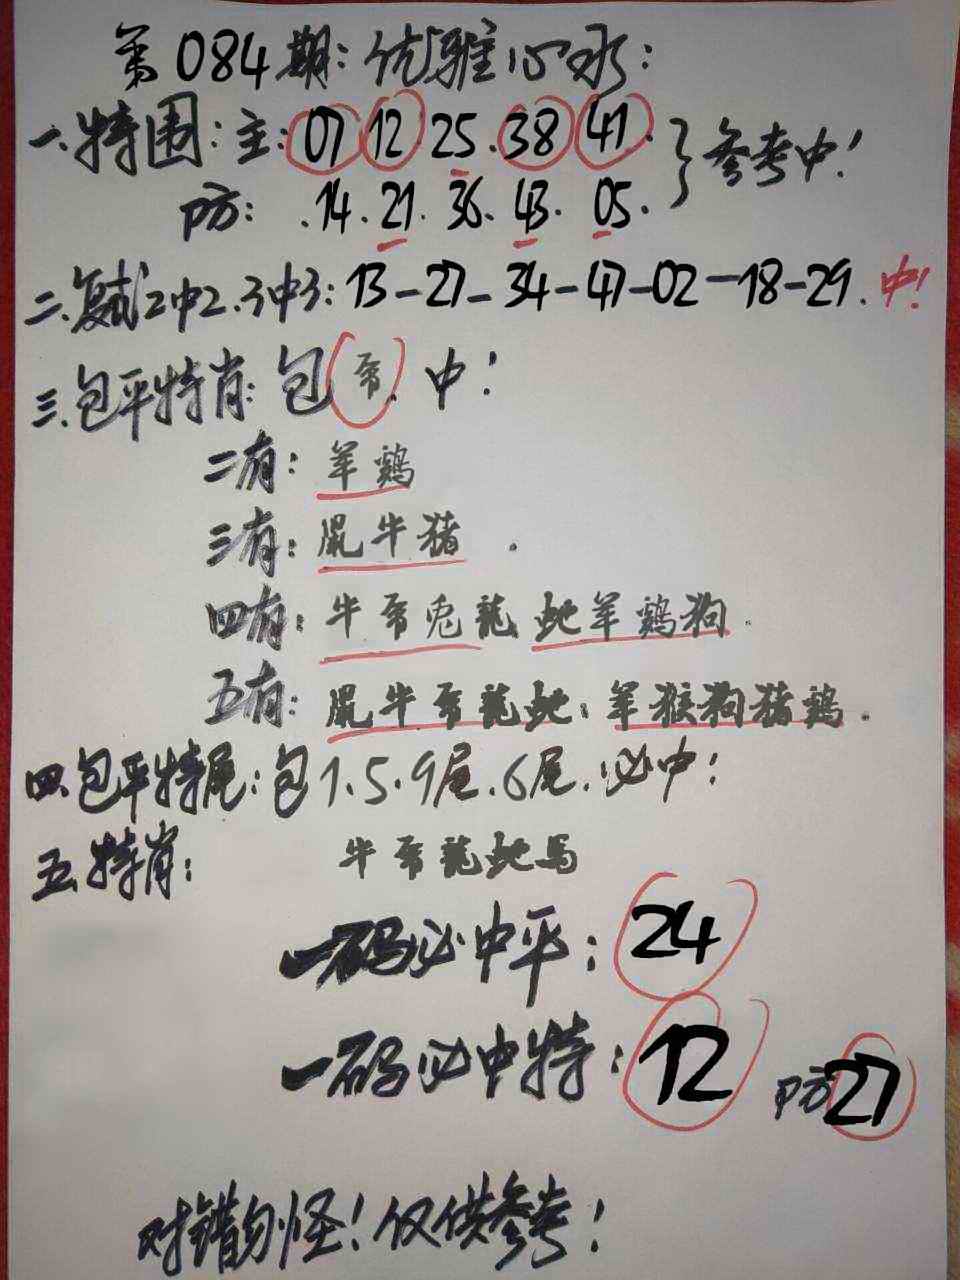 第084期：优雅心水：
一.特围：主：07 12 25.38 41.}参考中！
防：.14.21.36.43.05.
二.复式2中2.3中3：13-27-34-47-02-18-29.中！
三.包平特肖：包虎.中！
二有：羊鷄
三有：鼠牛猪.
四有：牛虎兔龍蛇羊鷄狗.
五有：鼠牛虎龍蛇.羊猴狗猪鷄.
四.包平特尾：包1.5.9尾.6尾.必中！
五.特肖：牛虎龍蛇馬
一码必中平：24
一码必中特：12 防27
对错勿怪！仅供参考！